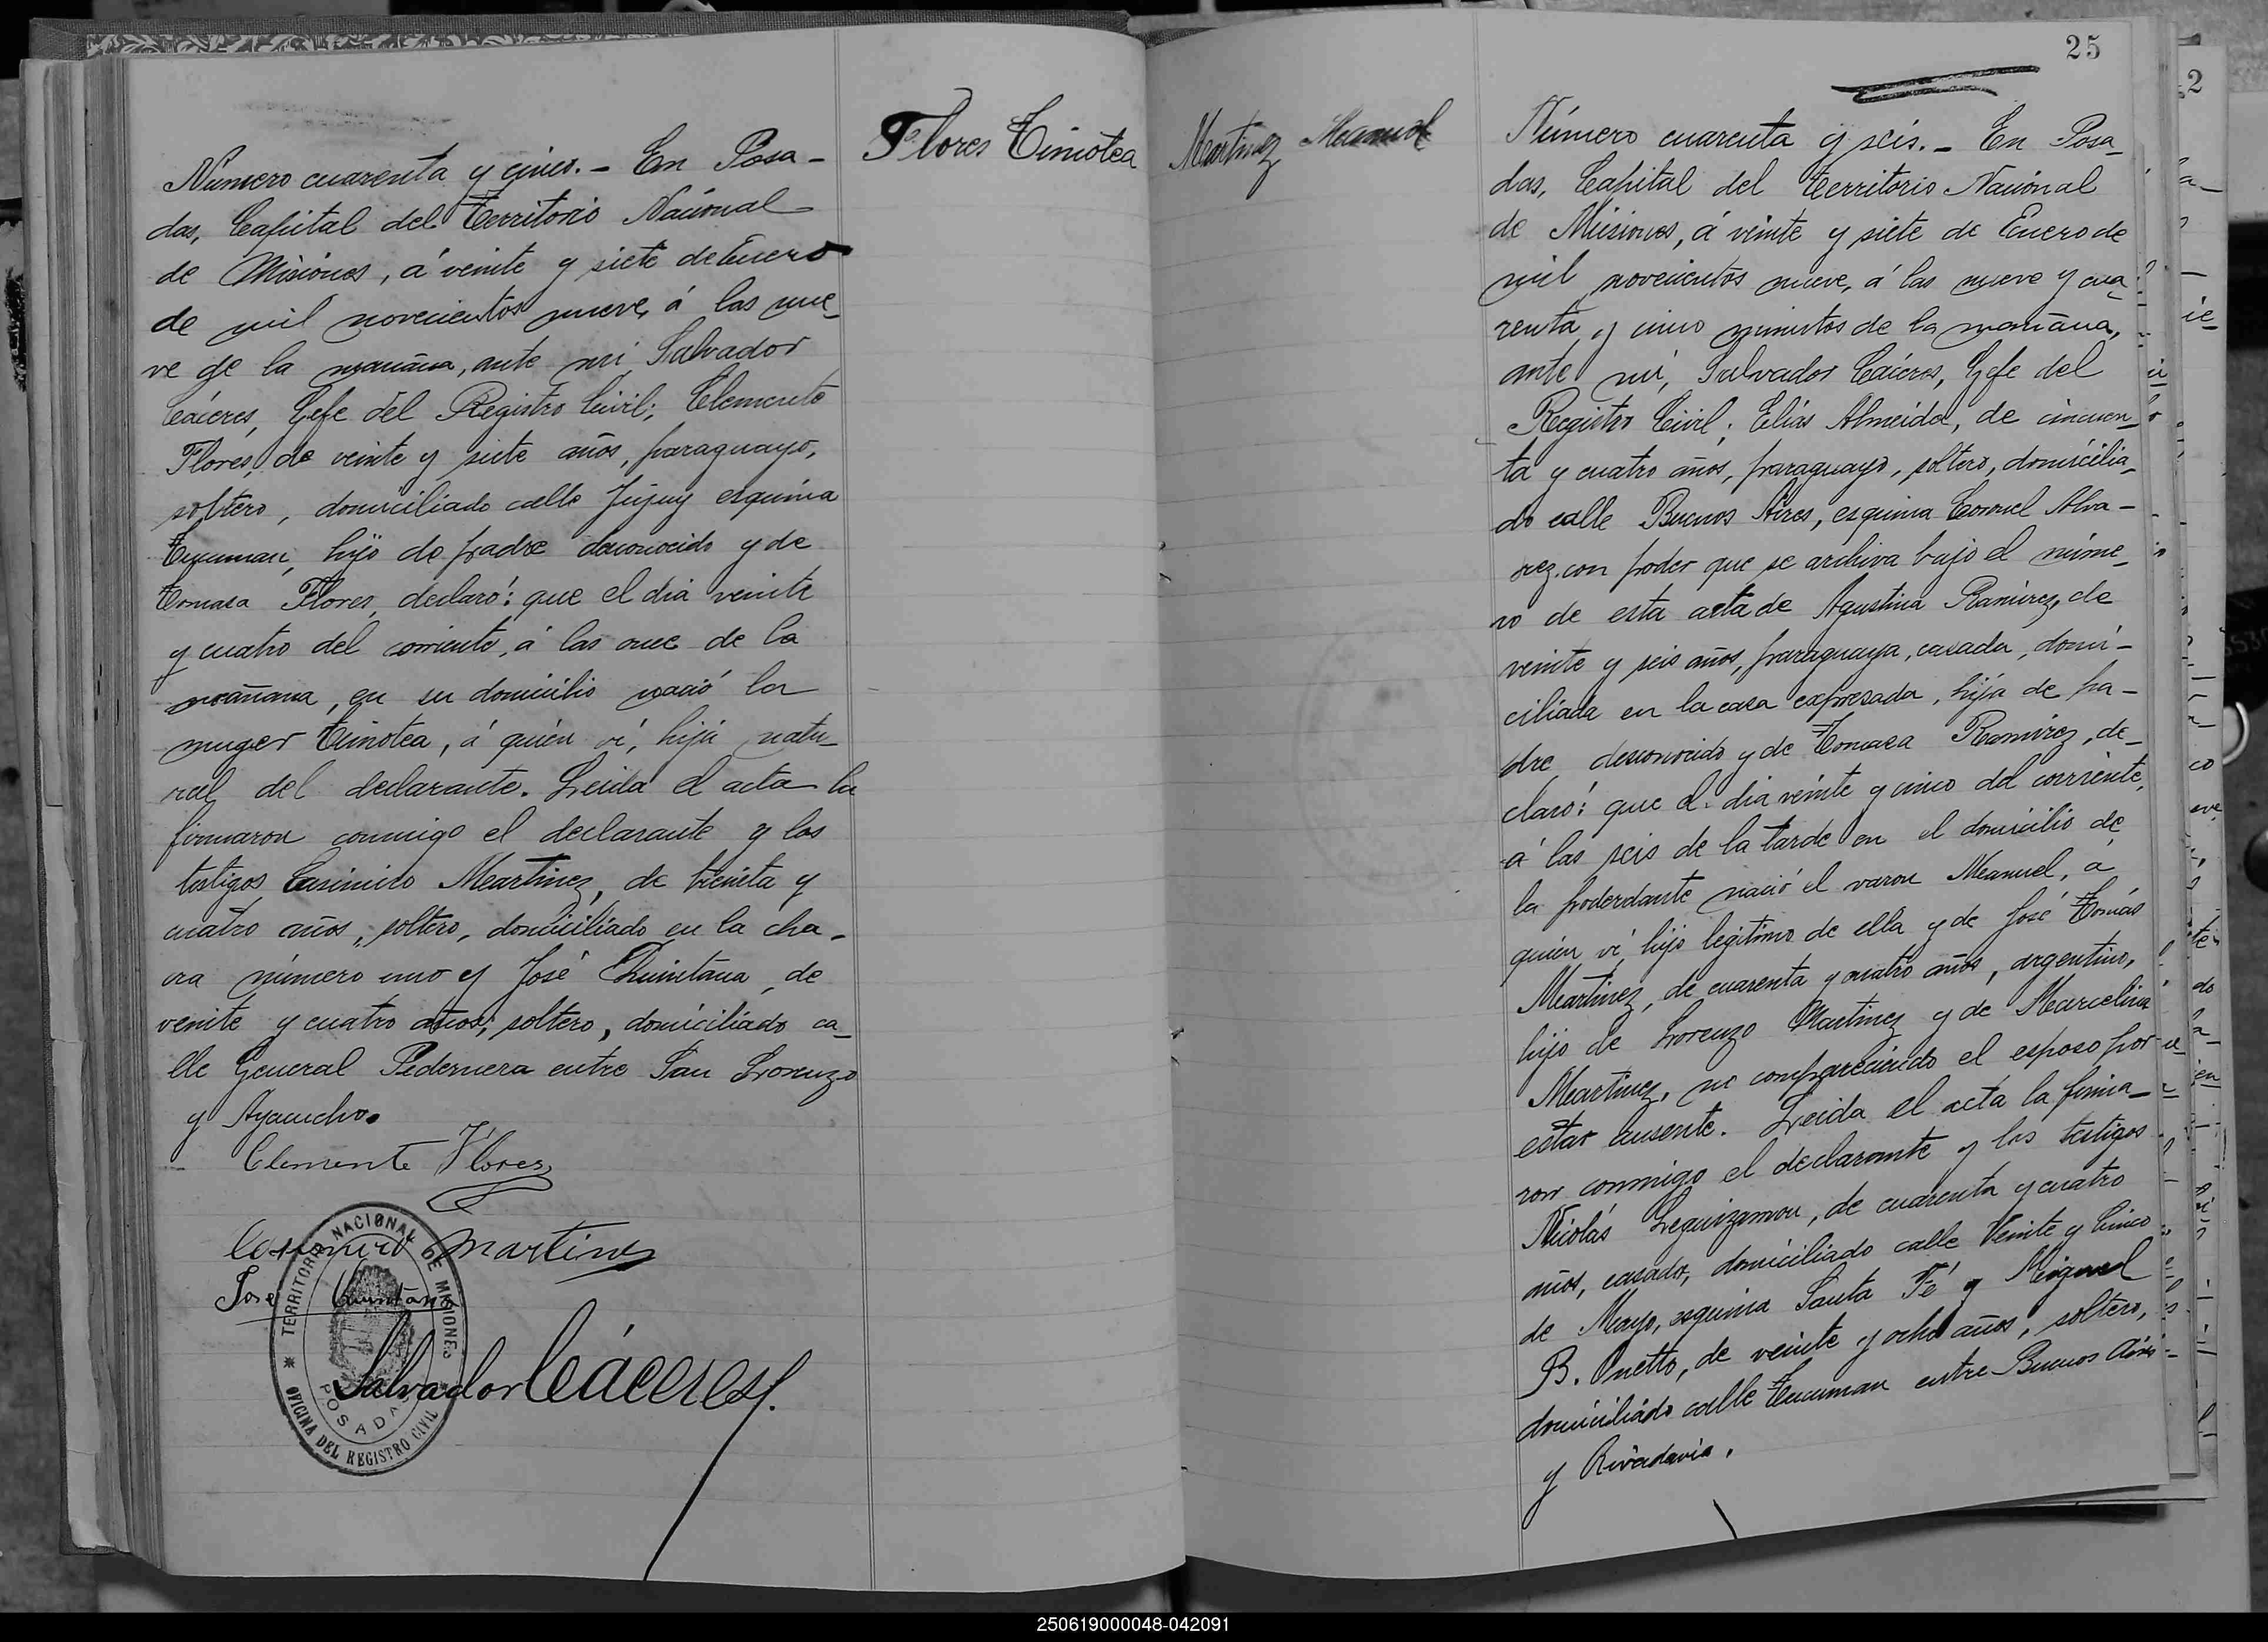 Flores Timotea
Número cuarenta y cinco. - En Posa-
das, Capital del Territorio Nacional
de Misiones, á veinte y siete de Enero
de mil novecientos nueve, á las nue-
ve de la mañana, ante mi Salvador
Cáceres, Gefe del Registro Civil; Clemente
Flores, de veinte y siete años, paraguayo,
soltero, domiciliado calle Jujuy esquina
Tucuman, hijo de padre desconocido y de
Tomasa Flores, declaró: que el dia veinte
y cuatro del corriente, á las once de la
mañana, en su domicilio nació la
muger Timotea, á quién ví, hija natu-
ral del declarante. Leida el acta la
firmaron conmigo el declarante y los
testigos Casimiro Martinez, de treinta y
cuatro años, soltero, domiciliado en la cha-
cra número uno y José Quintana, de
veinte y cuatro años, soltero, domiciliado ca-
lle General Pedernera entre San Lorenzo
y Ayacucho.
Clemente Flores
Casimiro Martines
Jose Quintana
Salvador Cáceres
TERRITORIO NACIONAL DE MISIONES
POSADAS
OFICINA DEL REGISTRO CIVIL
25
Martinez Manuel
Número cuarenta y seis. - En Posa-
das, Capital del Territorio Nacional
de Misiones, á veinte y siete de Enero de
mil novecientos nueve, á las nueve y cua-
renta y cinco minutos de la mañana,
ante mi, Salvador Cáceres, Gefe del
Registro Civil; Elías Almeida, de cincuen-
ta y cuatro años, paraguayo, soltero, domicilia-
do calle Buenos Aires, esquina Coronel Alva-
rez, con poder que se archiva bajo el núme-
ro de esta acta de Agustina Ramirez, de
veinte y seis años, paraguaya, casada, domi-
ciliada en la casa expresada, hija de pa-
dre desconocido y de Tomasa Ramirez, de-
claró: que el dia veinte y cinco del corriente,
á las seis de la tarde en el domicilio de
la poderdante nació el varon Manuel, á
quien ví, hijo legítimo de ella y de José Tomás
Martinez, de cuarenta y cuatro años, argentino,
hijo de Lorenzo Martinez y de Marcelina
Martinez, no compareciendo el esposo por
estar ausente. Leida el acta la firma-
ron conmigo el declarante y los testigos
Nicolás Leguizamon, de cuarenta y cuatro
años, casado, domiciliado calle Veinte y Cinco
de Mayo, esquina Santa Fé y Miguel
B. Onetto, de veinte y ocho años, soltero,
domiciliado calle Tucuman entre Buenos Aires
y Rivadavia.
2
250619000048-042091